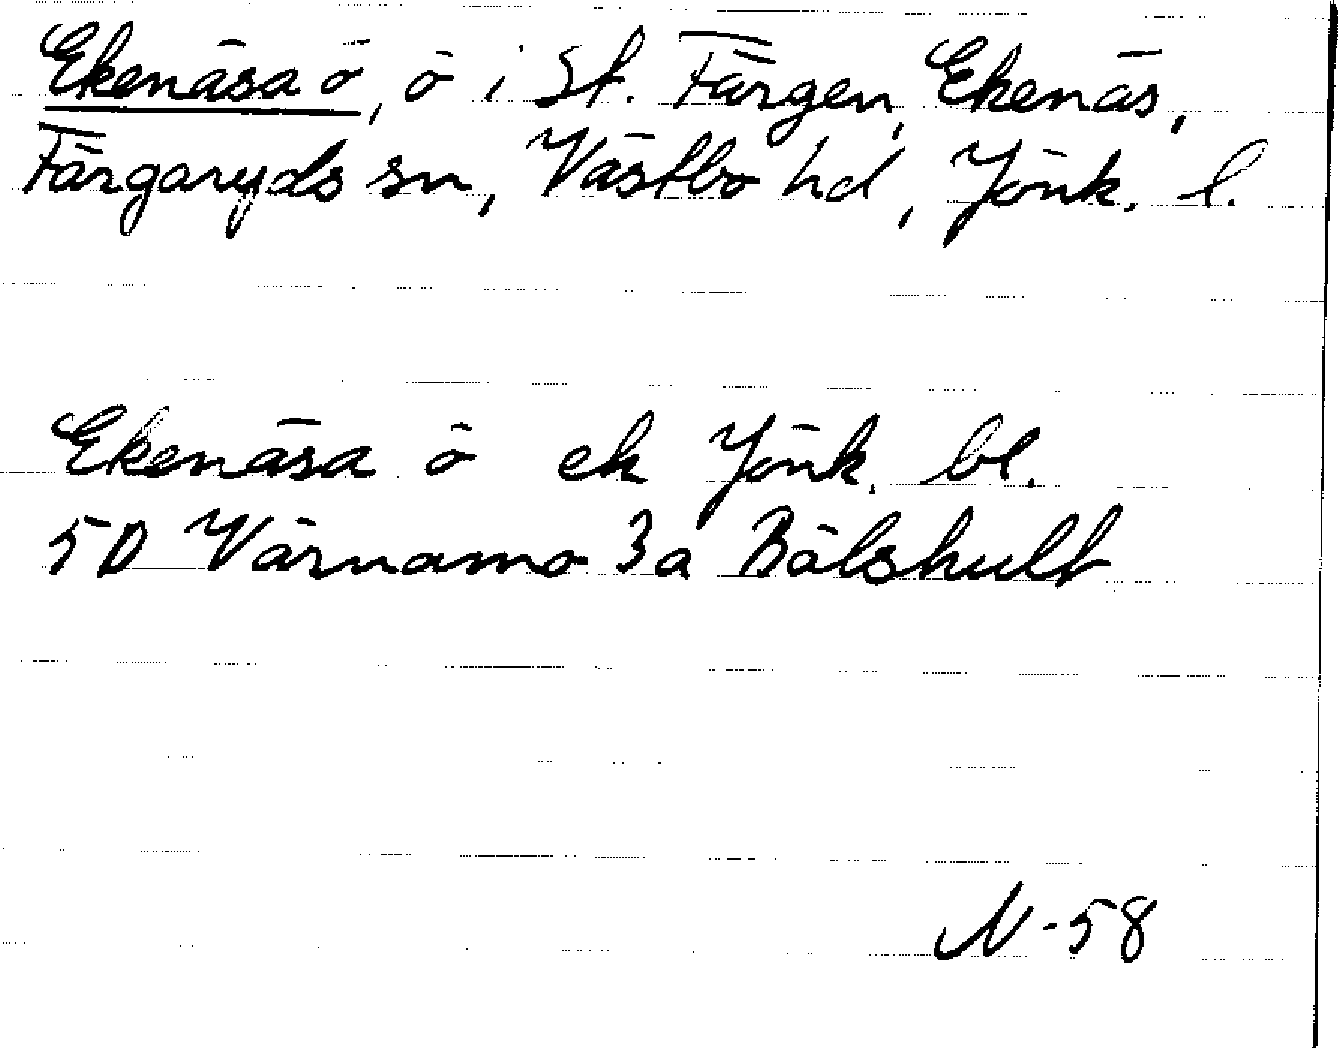 Ekenäsa ö, ö i St. Färgen, Ekenäs,
Färgaryds sn, Västbo hd, Jönk. l.
Ekenäsa ö ek Jönk. bl.
5D Värnamo 3a Bölshult
N-58